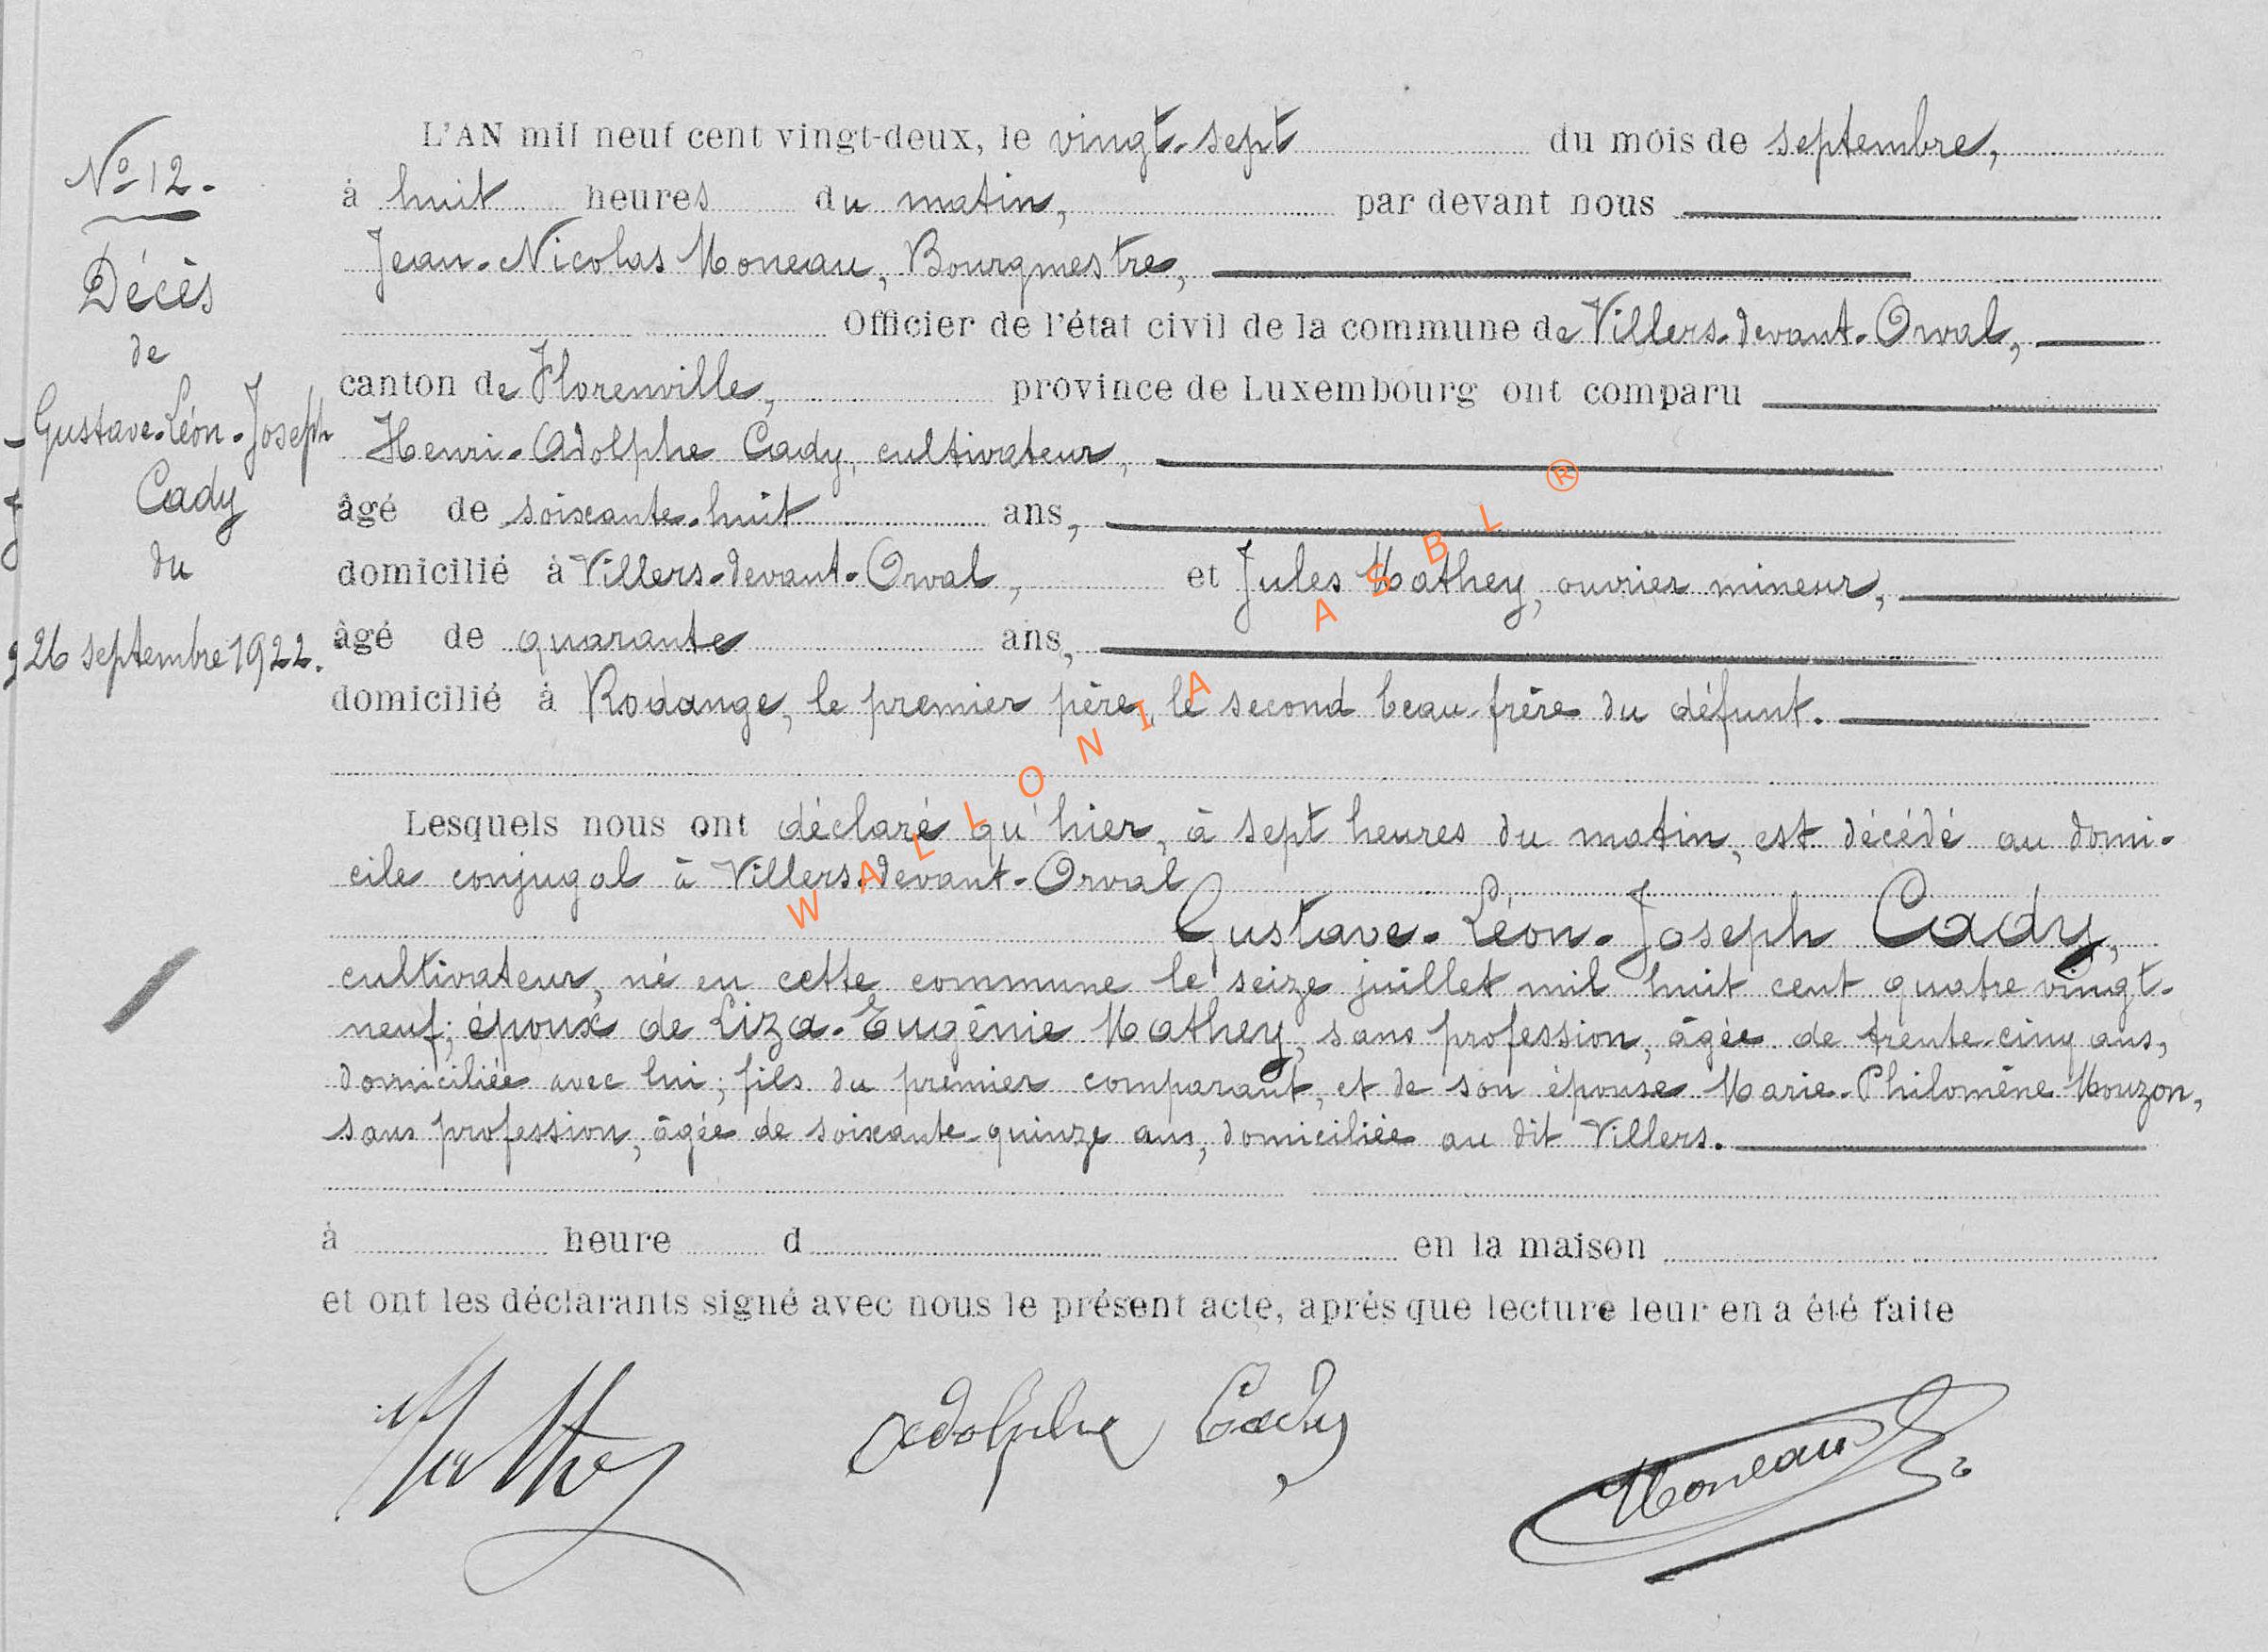 N° 12.
Décès
de
Gustave-Léon-Joseph
Cady
du
26 septembre 1922.
L'AN mil neuf cent vingt-deux, le vingt-sept du mois de septembre,
à huit heures du matin, par devant nous
Jean-Nicolas Moneau, Bourgmestre,
Officier de l'état civil de la commune de Villers-devant-Orval,
canton de Florenville, province de Luxembourg ont comparu
Henri-Adolphe Cady, cultivateur,
âgé de soixante-huit ans,
domicilié à Villers-devant-Orval, et Jules Mathey, ouvrier mineur,
âgé de quarante ans,
domicilié à Rodange, le premier père, le second beau-frère du défunt.
Lesquels nous ont déclaré qu'hier, à sept heures du matin, est décédé au domi-
cile conjugal à Villers-devant-Orval
Gustave-Léon-Joseph Cady,
cultivateur, né en cette commune le seize juillet mil huit cent quatre vingt-
neuf; époux de Liza-Eugénie Mathey, sans profession, âgée de trente-cinq ans,
domiciliée avec lui; fils du premier comparant, et de son épouse Marie-Philomène Mouzon,
sans profession, âgée de soixante-quinze ans, domiciliée au dit Villers.
à heure d en la maison
et ont les déclarants signé avec nous le présent acte, après que lecture leur en a été faite
Mathey Adolphe Cady Moneau
WALLONIA ASBL ®